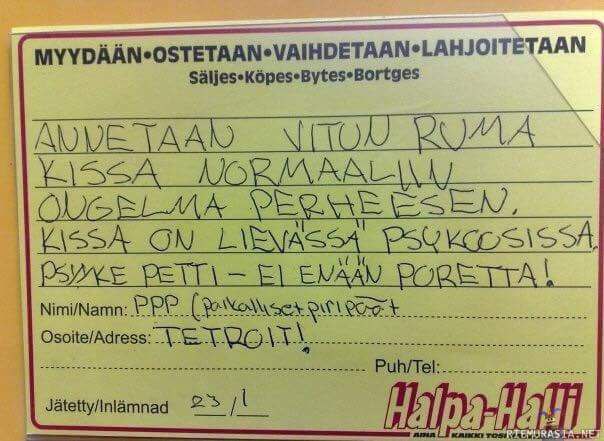 MYYDÄÄN•OSTETAAN•VAIHDETAAN•LAHJOITETAAN
Säljes•Köpes•Bytes•Bortges
ANNETAAN VITUN RUMA
KISSA NORMAALIIN
ONGELMA PERHEESEN.
KISSA ON LIEVÄSSÄ PSYKOOSISSA.
PSYYKE PETTI – EI ENÄÄN PORETTA!
Nimi/Namn: PPP (paikalliset piripäät
Osoite/Address: TETROIT!
Puh/Tel:
Jätetty/Inlämnad 23/1
Halpa-Halli
AINA KAIKKI
RTEMURASTA.NET